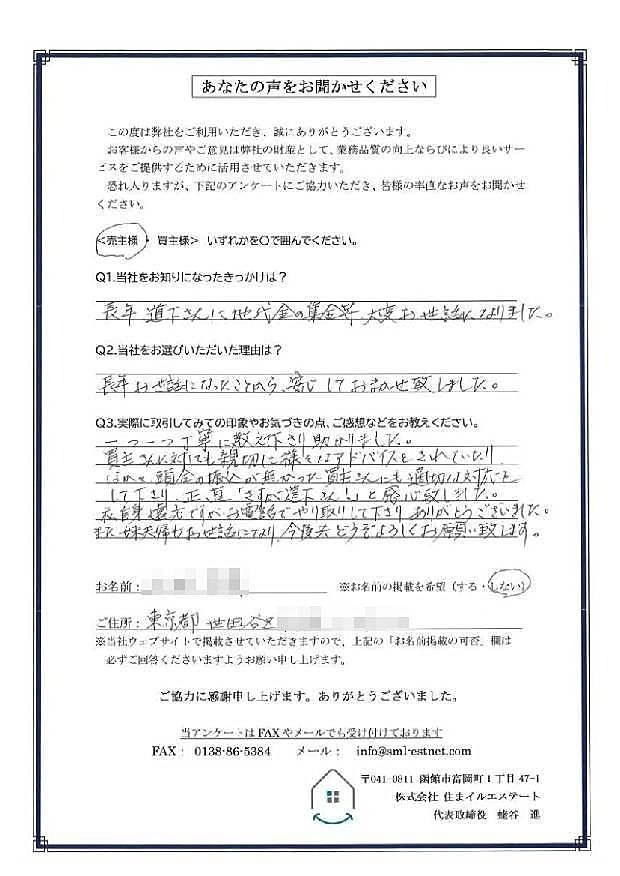 あなたの声をお聞かせください
この度は弊社をご利用いただき、誠にありがとうございます。
お客様からの声やご意見は弊社の財産として、業務品質の向上ならびにより良いサー
ビスをご提供するために活用させていただきます。
恐れ入りますが、下記のアンケートにご協力いただき、皆様の率直なお声をお聞かせ
ください。
<売主様・買主様> いずれかを○で囲んでください。
Q1.当社をお知りになったきっかけは？
長年 道下さんに地代金の集金等、大変お世話になりました。
Q2.当社をお選びいただいた理由は？
長年お世話になったことから、安心してお任せ致しました。
Q3.実際に取引してみての印象やお気づきの点、ご感想などをお教えください。
一つ一つ丁寧に教え下さり助かりました。
買主さんに対しても親切に様々なアドバイスをされていたり
頭金の振込が無かった買主さんにも適切な対応を
して下さり、正直「さすが道下さん！」と感心致しました。
私自身遠方ですがお電話でやり取りして下さりありがとうございました。
また、妹夫婦もお世話になり、今後共どうぞよろしくお願い致します。
お名前：
※お名前の掲載を希望（する・しない）
ご住所：東京都 世田谷区
※当社ウェブサイトで掲載させていただきますので、上記の「お名前掲載の可否」欄は
必ずご回答くださいますようお願い申し上げます。
ご協力に感謝申し上げます。ありがとうございました。
当アンケートはFAXやメールでも受け付けております
FAX： 0138-86-5384 メール： info@sml-estnet.com
〒041-0811 函館市富岡町1丁目47-1
株式会社 住まイルエステート
代表取締役 蛯谷 進